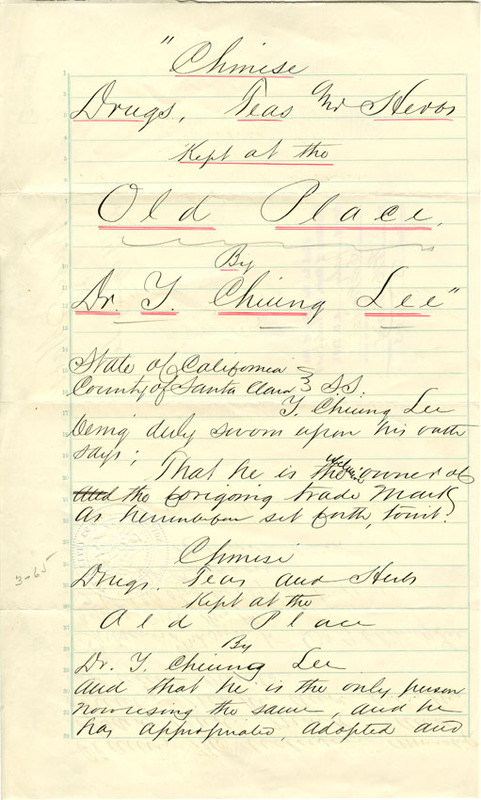 "Chinise
Drugs, Teas And Herbs
Kept at the
Old Place,
By
Dr. Y. Cheung Lee"
State of California }
County of Santa Clara } S.S.
Y. Cheung Lee
being duly sworn upon his oath
says; That he is the owner of
and the foregoing trade Mark
as hereinbefore set forth, towit:
Chinise
Drugs. Teas and Herbs
Kept at the
Old Place
By
Dr. Y. Cheung Lee
and that he is the only person
now using the same, and he
has appropriated, adopted and
3-65